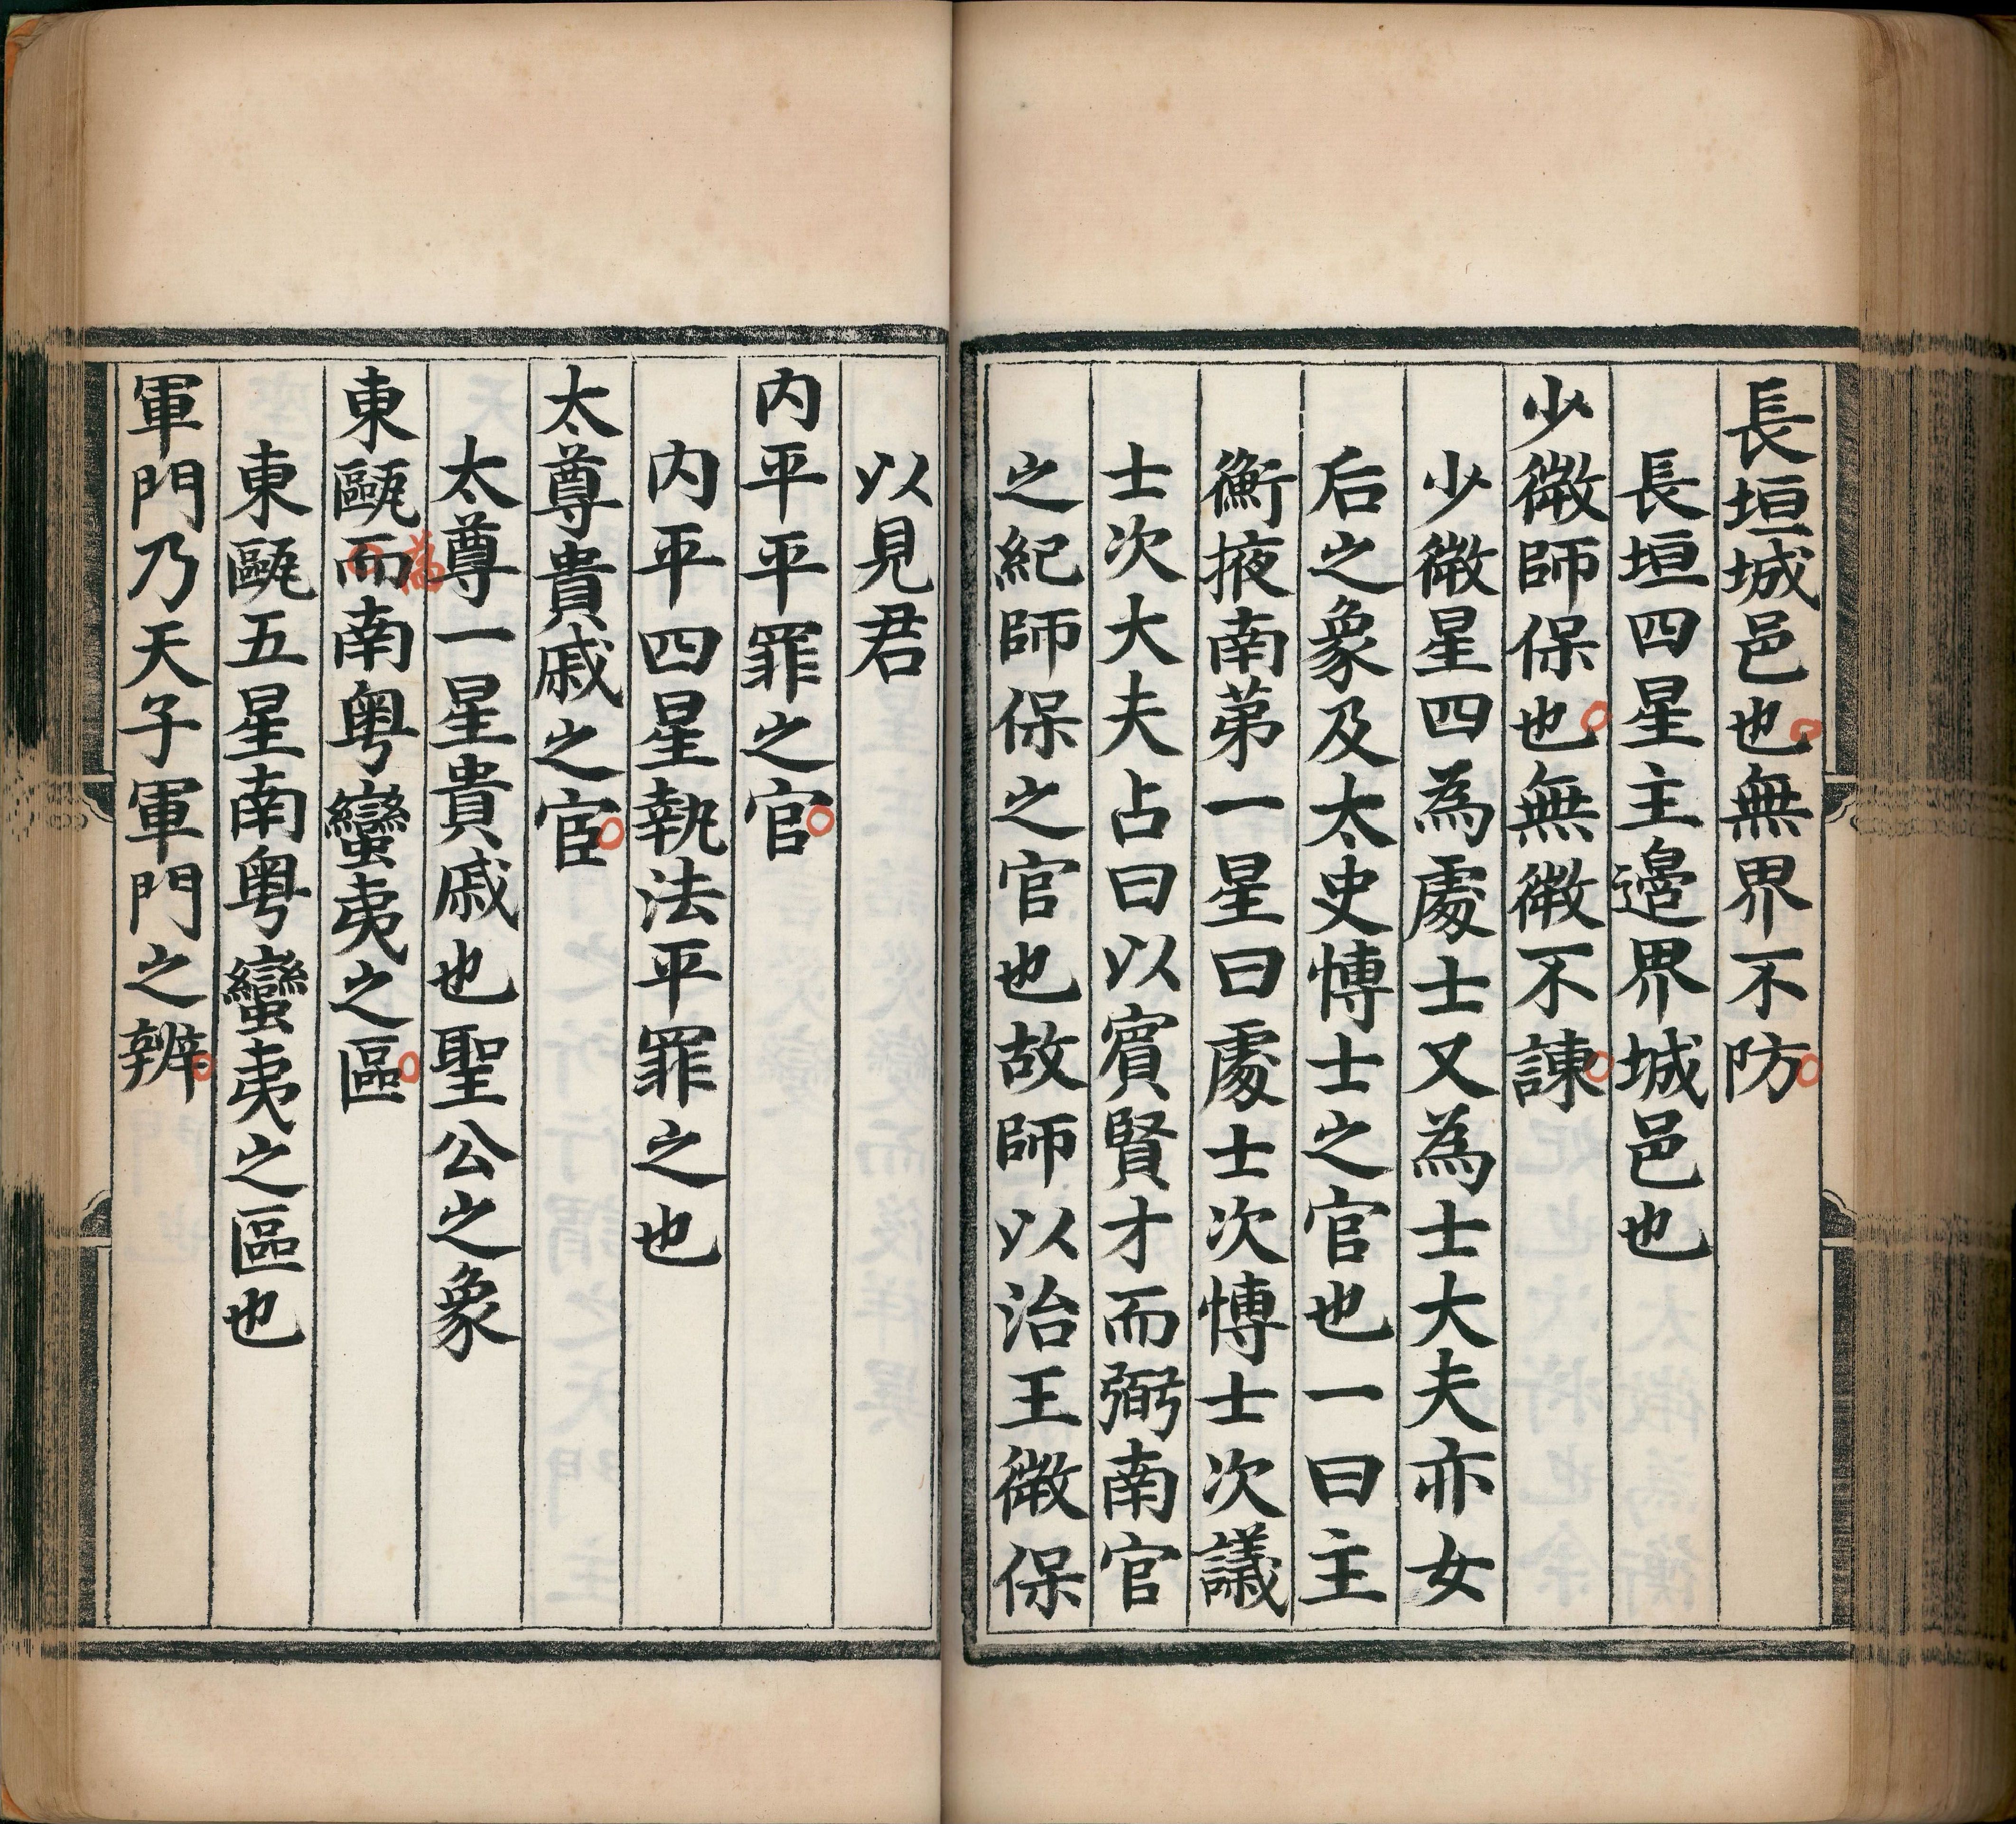 長垣城邑也無界不防
長垣四星主邊界城邑也
少微師保也無微不諫
少微星四為處士又為士大夫亦女
后之象及太史愽士之官也一曰主
衡掖南苐一星曰處士次愽士次議
士次大夫占曰以賓賢才而弼南官
之紀師保之官也故師以治王微保
以見君
内平平罪之官
内平四星執法平罪之也
太尊貴戚之宦
太尊一星貴戚也聖公之象
東甌而南粤蠻夷之區
為
東甌五星南粤蠻夷之區也
軍門乃天子軍門之辨